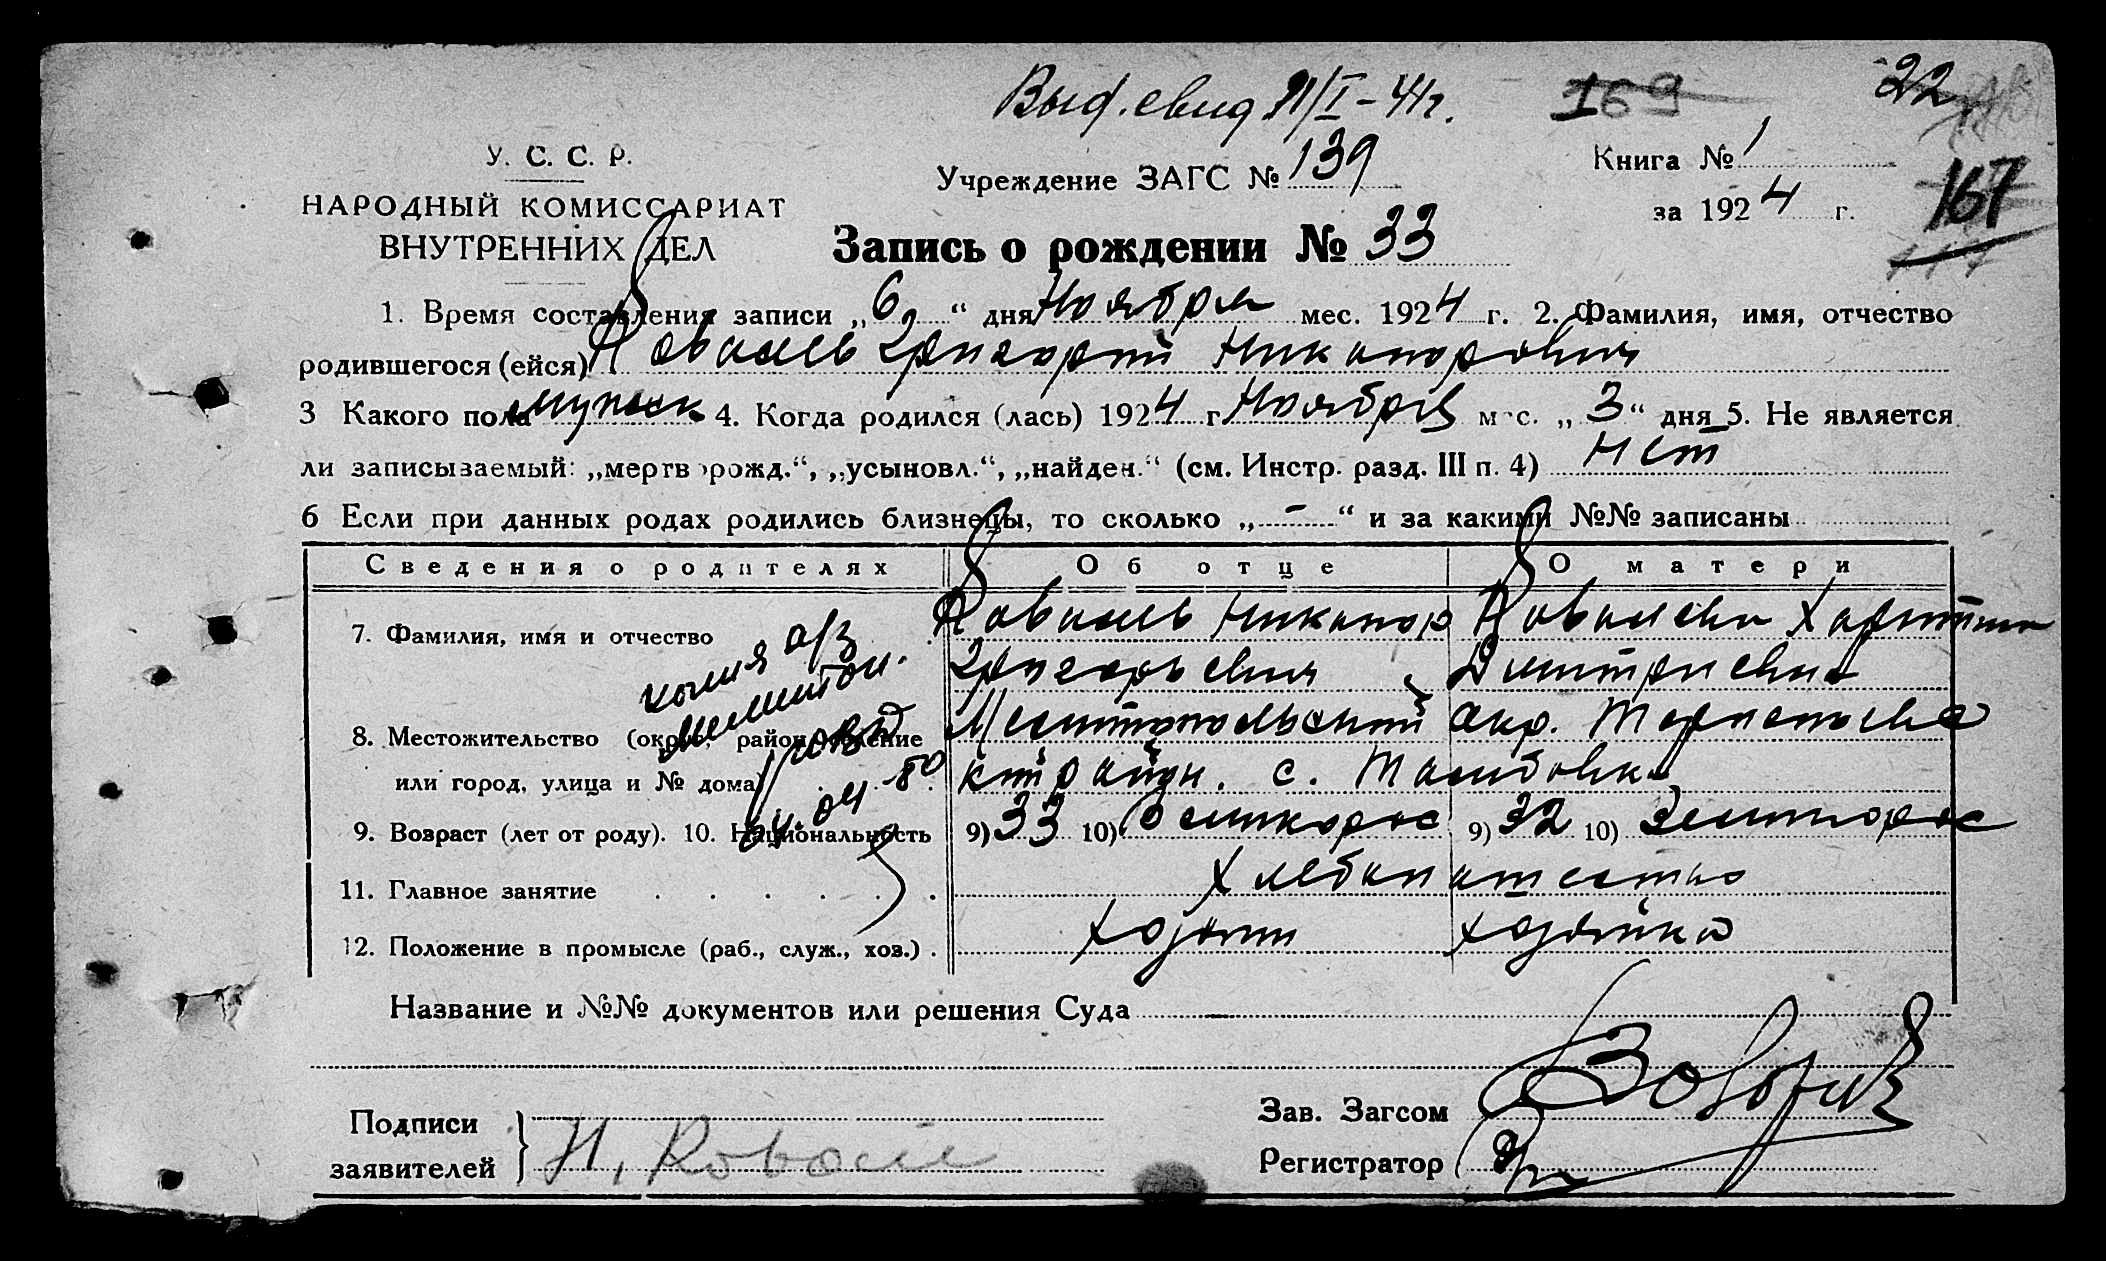 Выд. свид 21/I-41г. 169 22
У. С. С. Р.
Учреждение ЗАГС № 139
Книга № 1
за 1924 г.
167
НАРОДНЫЙ КОМИССАРИАТ
ВНУТРЕННИХ ДЕЛ
Запись о рождении № 33
1. Время составления записи „6“ дня Ноября мес. 1924 г. 2. Фамилия, имя, отчество
родившегося (ейся) Коваль Григорий Никанорович
3 Какого пола мужск 4. Когда родился (лась) 1924 г. Ноября мес. „3“ дня 5. Не является
ли записываемый: „мертворожд.“, „усыновл.“, „найден.“ (см. Инстр. разд. III п. 4) Нет
6 Если при данных родах родились близнецы, то сколько „-“ и за какими №№ записаны
Сведения о родителях Об отце О матери
7. Фамилия, имя и отчество Коваль Никанор Ковалева Харитина
Григорьевич Дмитриевна
копия а/з
8. Местожительство (округ, район, селение Мелитопольский окр.
или город, улица и № дома) район. с.
9. Возраст (лет от роду). 10. Национальность 9) 33 10) 9) 32 10)
11. Главное занятие Хлебопашество
12. Положение в промысле (раб., служ., хоз.) хозяин хозяйка
Название и №№ документов или решения Суда —
Подписи
заявителей Н. Коваль
Зав. Загсом
Регистратор